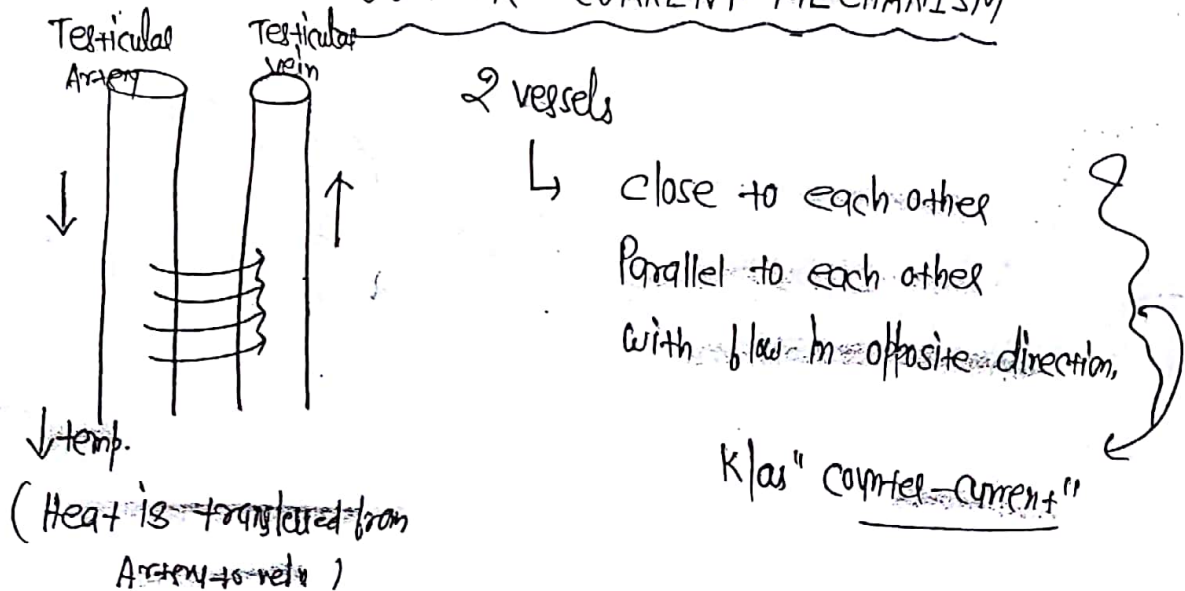 COUNTER CURRENT MECHANISM
Testicular Artery
Testicular vein
2 vessels
↓ ↑
↳ Close to each other
Parallel to each other
with flow in opposite direction,
K/as "counter-current"
↓ temp.
(Heat is transferred from
Artery to vein)